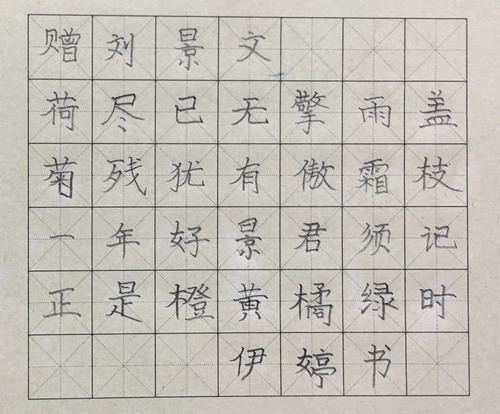 赠刘景文
荷尽已无擎雨盖
菊残犹有傲霜枝
一年好景君须记
正是橙黄橘绿时
伊婷书